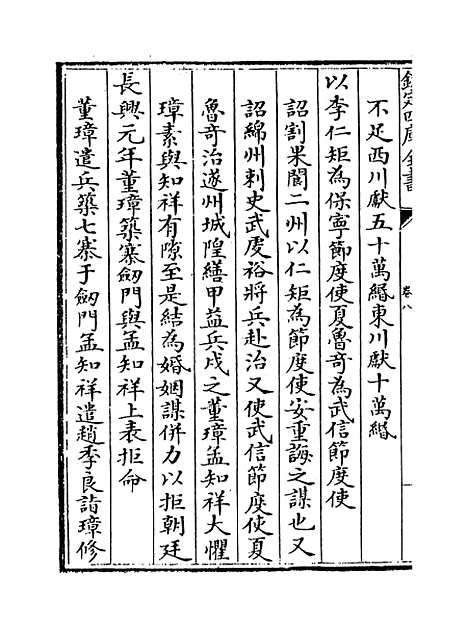 欽定四庫全書
卷八
不足西川獻五十萬緡東川獻十萬緡
以李仁矩為保寧節度使夏魯奇為武信節度使
詔割果閬二州以仁矩為節度使安重誨之謀也又
詔綿州刺史武虔裕將兵赴治又使武信節度使夏
魯奇治遂州城隍繕甲益兵戍之董璋孟知祥大懼
璋素與知祥有隙至是結為婚姻謀併力以拒朝廷
長興元年董璋築寨劒門與孟知祥上表拒命
董璋遣兵築七寨于劒門孟知祥遣趙季良詣璋修